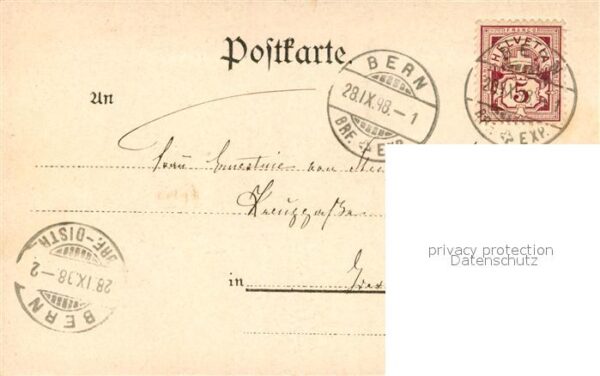 Postkarte.
An
BERN
28.IX.98.–1
BRF. EXP.
FRANCO
HELVETIA
5
BERN
28.IX.98
BRF. EXP.
Frau Ernestine von
Kreuzgasse
in
BRF-DISTR
28.IX.98–2
BERN
privacy protection
Datenschutz